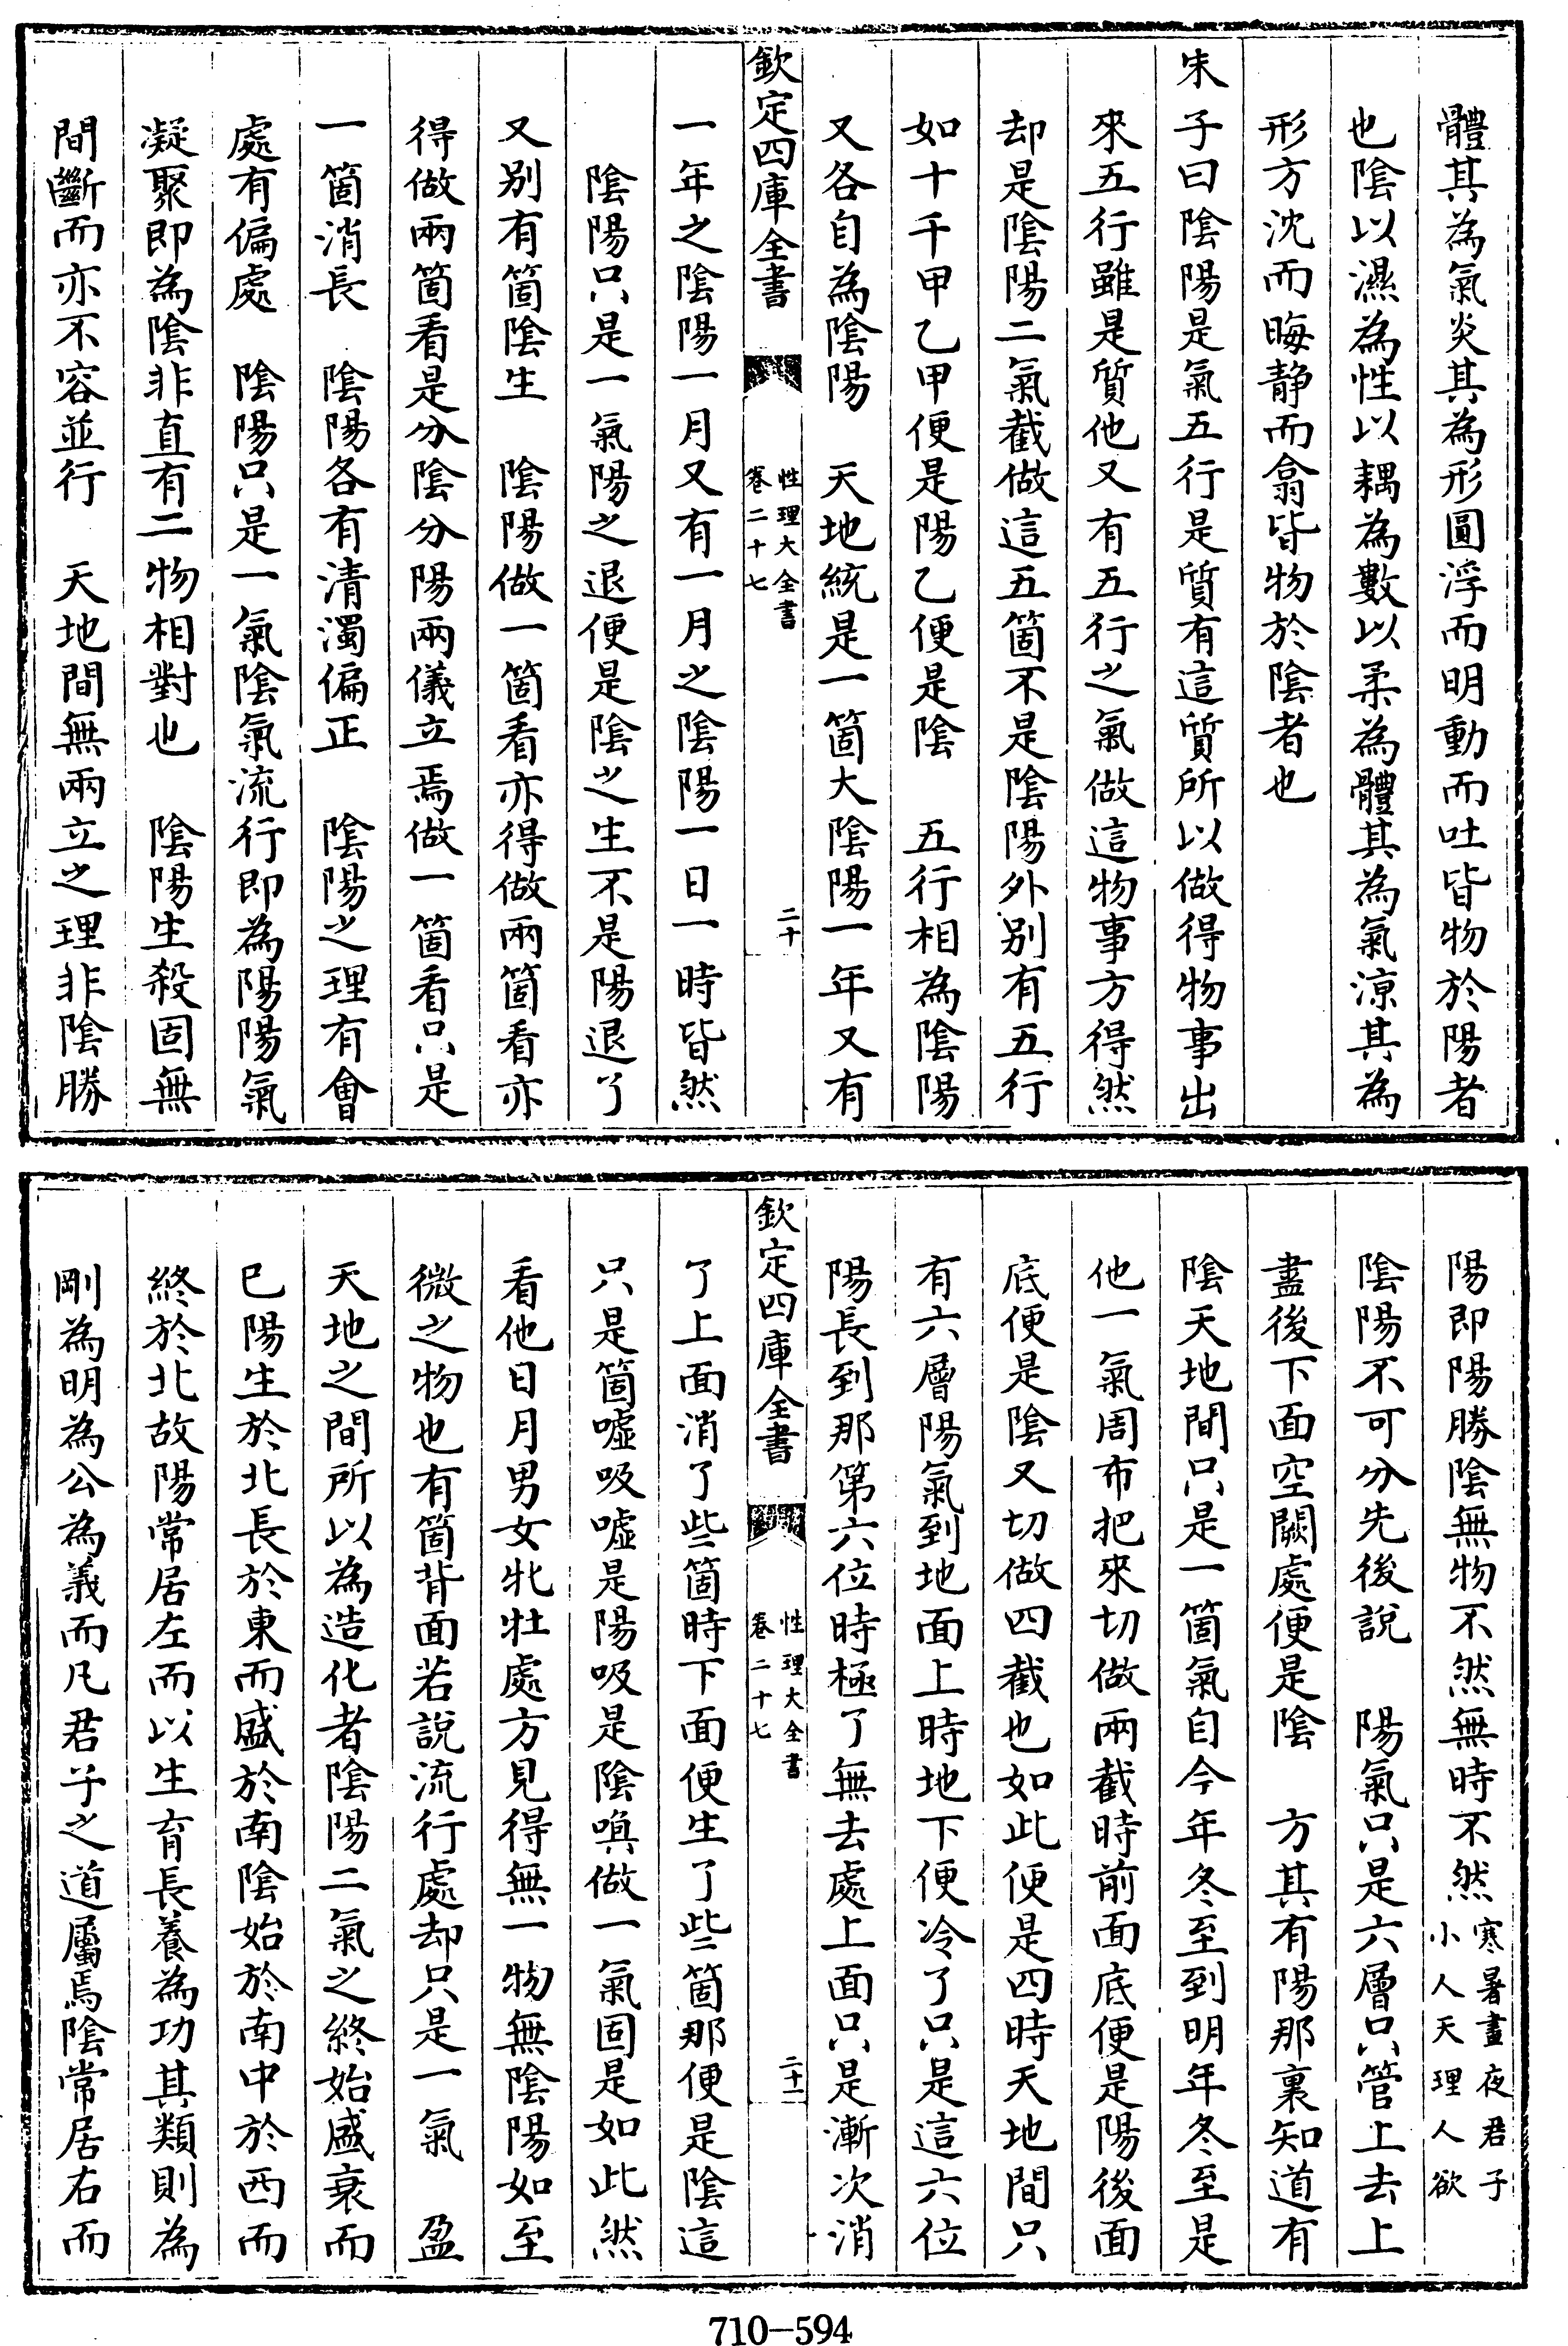 體其為氣炎其為形圓浮而明動而吐皆物於陽者
也陰以濕為性以耦為數以柔為體其為氣涼其為
形方沈而晦静而翕皆物於陰者也
朱子曰陰陽是氣五行是質有這質所以做得物事出
來五行雖是質他又有五行之氣做這物事方得然
却是陰陽二氣截做這五箇不是陰陽外別有五行
如十千甲乙甲便是陽乙便是陰　五行相為陰陽
又各自為陰陽　天地統是一箇大陰陽一年又有
欽定四庫全書
性理大全書
卷二十七
二十
一年之陰陽一月又有一月之陰陽一日一時皆然
陰陽只是一氣陽之退便是陰之生不是陽退了
又別有箇陰生　陰陽做一箇看亦得做兩箇看亦
得做兩箇看是分陰分陽兩儀立焉做一箇看只是
一箇消長　陰陽各有清濁偏正　陰陽之理有會
處有偏處　陰陽只是一氣陰氣流行即為陽陽氣
凝聚即為陰非直有二物相對也　陰陽生殺固無
間斷而亦不容並行　天地間無兩立之理非陰勝
陽即陽勝陰無物不然無時不然
寒暑晝夜君子
小人天理人欲
陰陽不可分先後說　陽氣只是六層只管上去上
盡後下面空闕處便是陰　方其有陽那裏知道有
陰天地間只是一箇氣自今年冬至到明年冬至是
他一氣周布把來切做兩截時前面底便是陽後面
底便是陰又切做四截也如此便是四時天地間只
有六層陽氣到地面上時地下便冷了只是這六位
陽長到那第六位時極了無去處上面只是漸次消
欽定四庫全書
性理大全書
卷二十七
二十一
了上面消了些箇時下面便生了些箇那便是陰這
只是箇噓吸噓是陽吸是陰喚做一氣固是如此然
看他日月男女牝牡處方見得無一物無陰陽如至
微之物也有箇背面若說流行處却只是一氣　盈
天地之間所以為造化者陰陽二氣之終始盛衰而
已陽生於北長於東而盛於南陰始於南中於西而
終於北故陽常居左而以生育長養為功其類則為
剛為明為公為義而凡君子之道屬焉陰常居右而
710-594